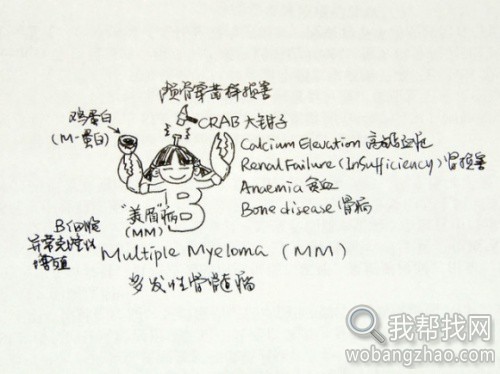 颅骨穿凿样损害
鸡蛋白
(M-蛋白)
CRAB 大钳子
Calcium Elevation 高钙血症
Renal Failure (Insufficiency) 肾损害
Anaemia 贫血
Bone disease 骨病
"美眉"病
(MM)
B
B细胞
异常克隆性
增殖
Multiple Myeloma (MM)
多发性骨髓瘤
我帮找网
wobangzhao.com